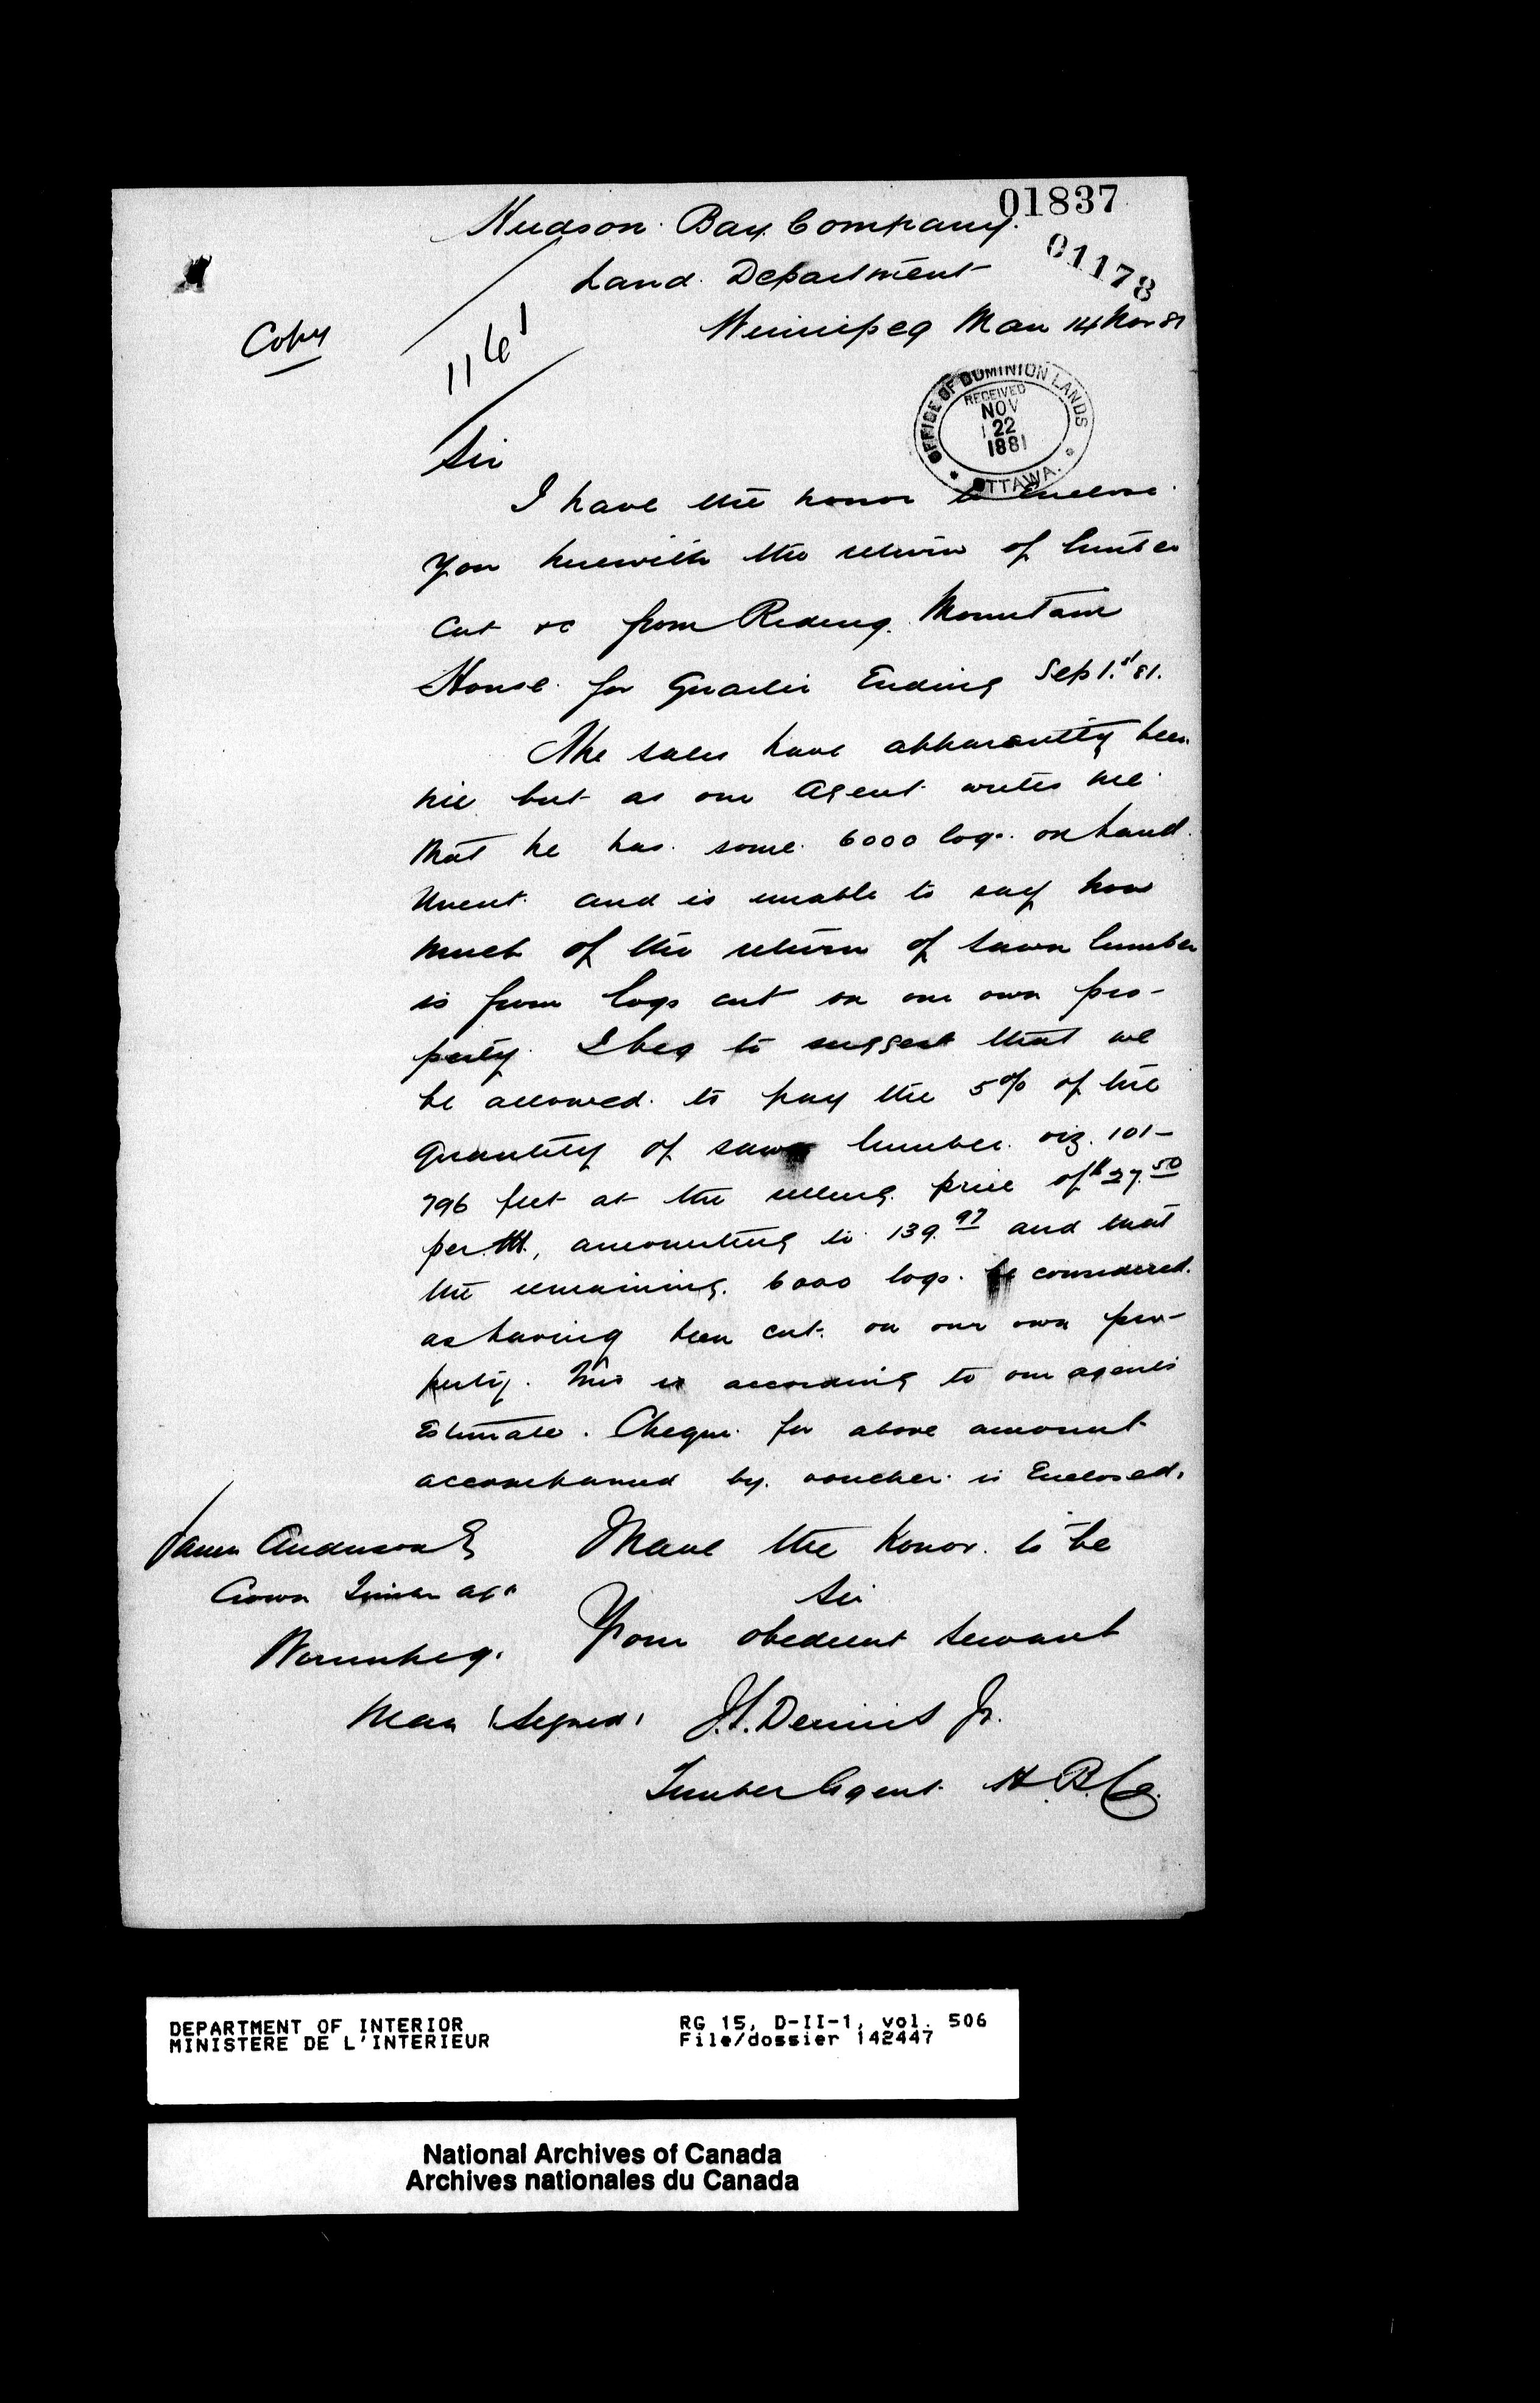 01837
Hudson Bay Company.
01178
Land Department
Winnipeg Man 14 Nov 81
Copy
1161
OFFICE OF DOMINION LANDS
RECEIVED
NOV
22
1881
OTTAWA.
Sir
I have the honor to Enclose
you herewith the return of lumber
cut &c from Riding Mountain
House for Quarter Ending Sep 1.st 81.
The sales have apparently been
nil but as our Agent writes me
that he has some 6000 logs on hand
uncut and is unable to say how
much of the return of sawn lumber
is from logs cut on our own pro-
perty I beg to suggest that we
be allowed to pay the 5% of the
quantity of sawn lumber viz. 101-
796 feet at the selling price of $27.50
per M, amounting to 139.97 and that
the remaining 6000 logs be considered
as having been cut on our own pro-
perty. This is according to our agents
Estimate. Cheque for above amount
accompanied by voucher is Enclosed.
I have the Honor to be
Sir
Your obedient servant
James Anderson E
Crown Timber Agt
Winnipeg.
Man (Signed) J.S. Dennis Jr.
Timber Agent H.B.Co.
DEPARTMENT OF INTERIOR
MINISTERE DE L'INTERIEUR
RG 15, D-II-1, vol. 506
File/dossier 142447
National Archives of Canada
Archives nationales du Canada